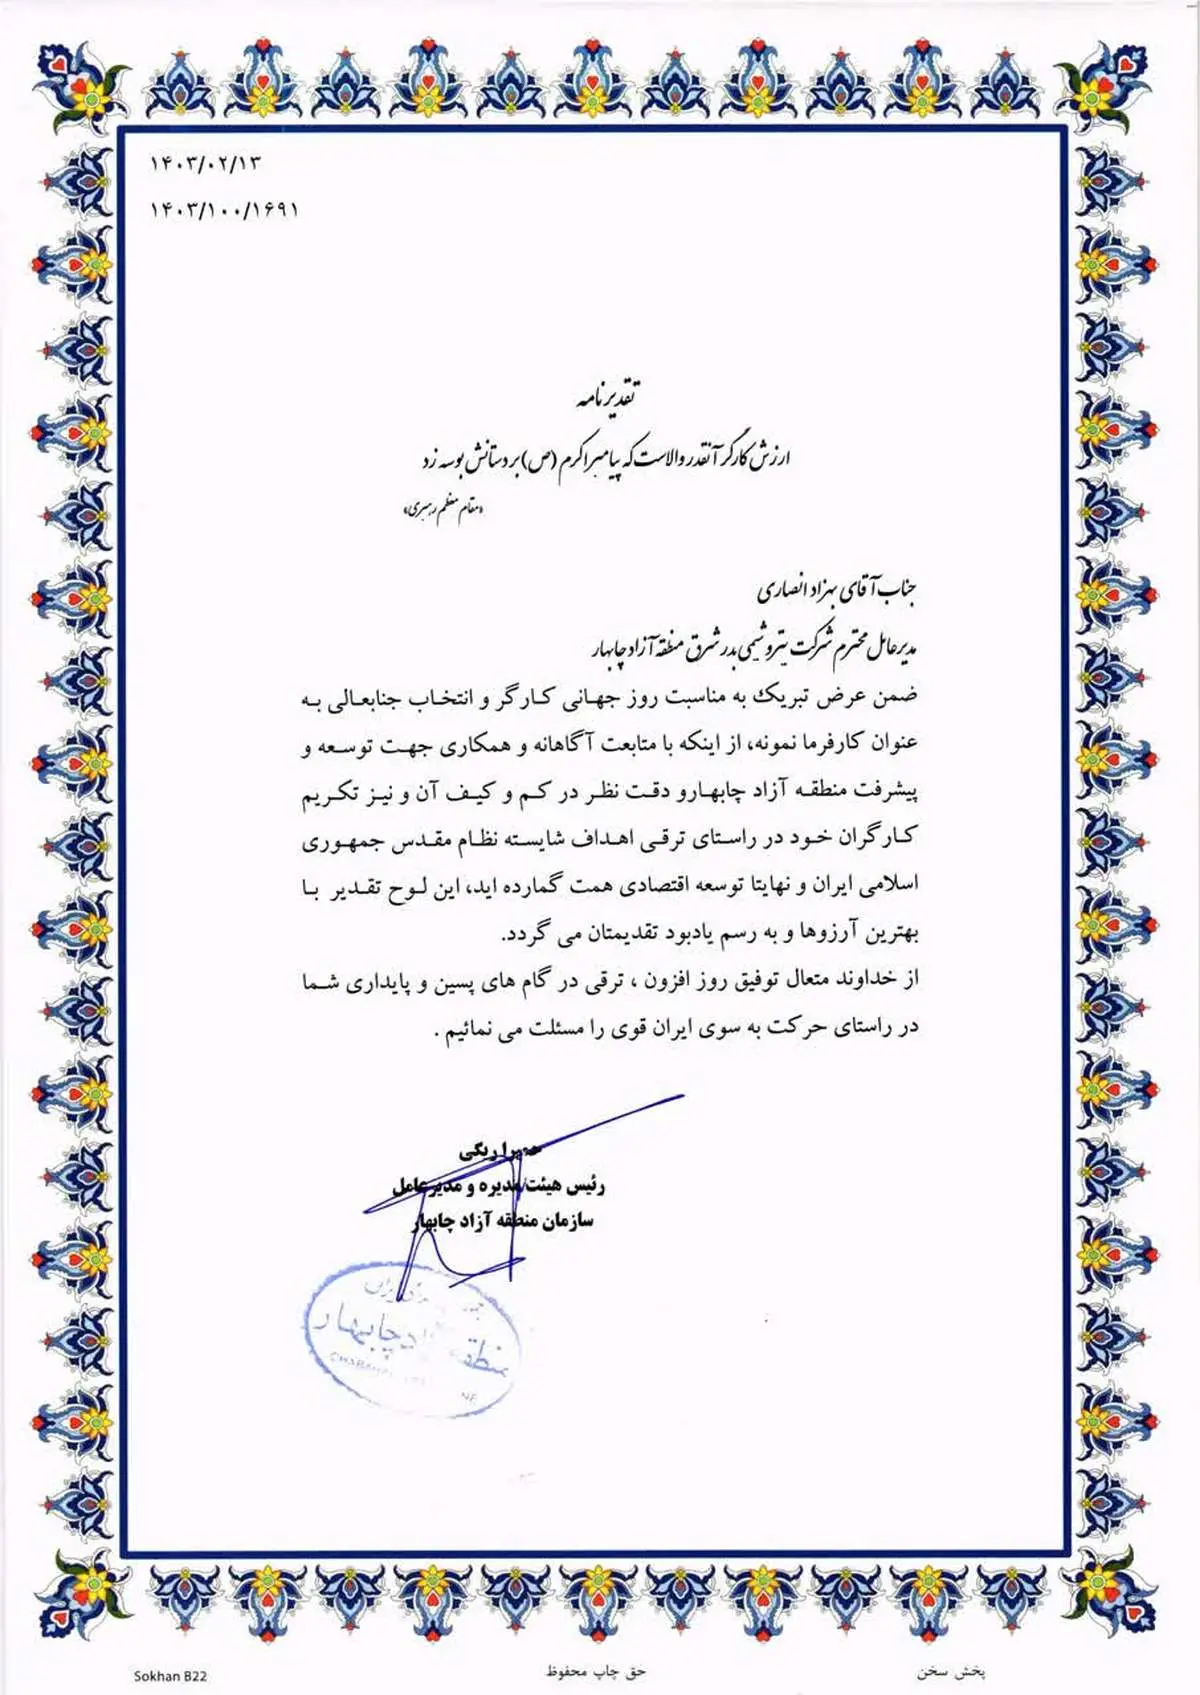 ۱۴۰۳/۰۲/۱۳
۱۴۰۳/۱۰۰/۱۶۹۱
تقدیرنامه
ارزش کارگر آنقدر والاست که پیامبر اکرم (ص) بر دستانش بوسه زد
«مقام معظم رهبری»
جناب آقای بهزاد انصاری
مدیرعامل محترم شرکت پتروشیمی بدر شرق منطقه آزاد چابهار
ضمن عرض تبریک به مناسبت روز جهانی کارگر و انتخاب جنابعالی به
عنوان کارفرما نمونه، از اینکه با متابعت آگاهانه و همکاری جهت توسعه و
پیشرفت منطقه آزاد چابهارو دقت نظر در کم و کیف آن و نیز تکریم
کارگران خود در راستای ترقی اهداف شایسته نظام مقدس جمهوری
اسلامی ایران و نهایتا توسعه اقتصادی همت گمارده اید، این لوح تقدیر با
بهترین آرزوها و به رسم یادبود تقدیمتان می گردد.
از خداوند متعال توفیق روز افزون ، ترقی در گام های پسین و پایداری شما
در راستای حرکت به سوی ایران قوی را مسئلت می نمائیم .
ریگی
رئیس هیئت مدیره و مدیرعامل
سازمان منطقه آزاد چابهار
چابهار
Sokhan B22
حق چاپ محفوظ
پخش سخن